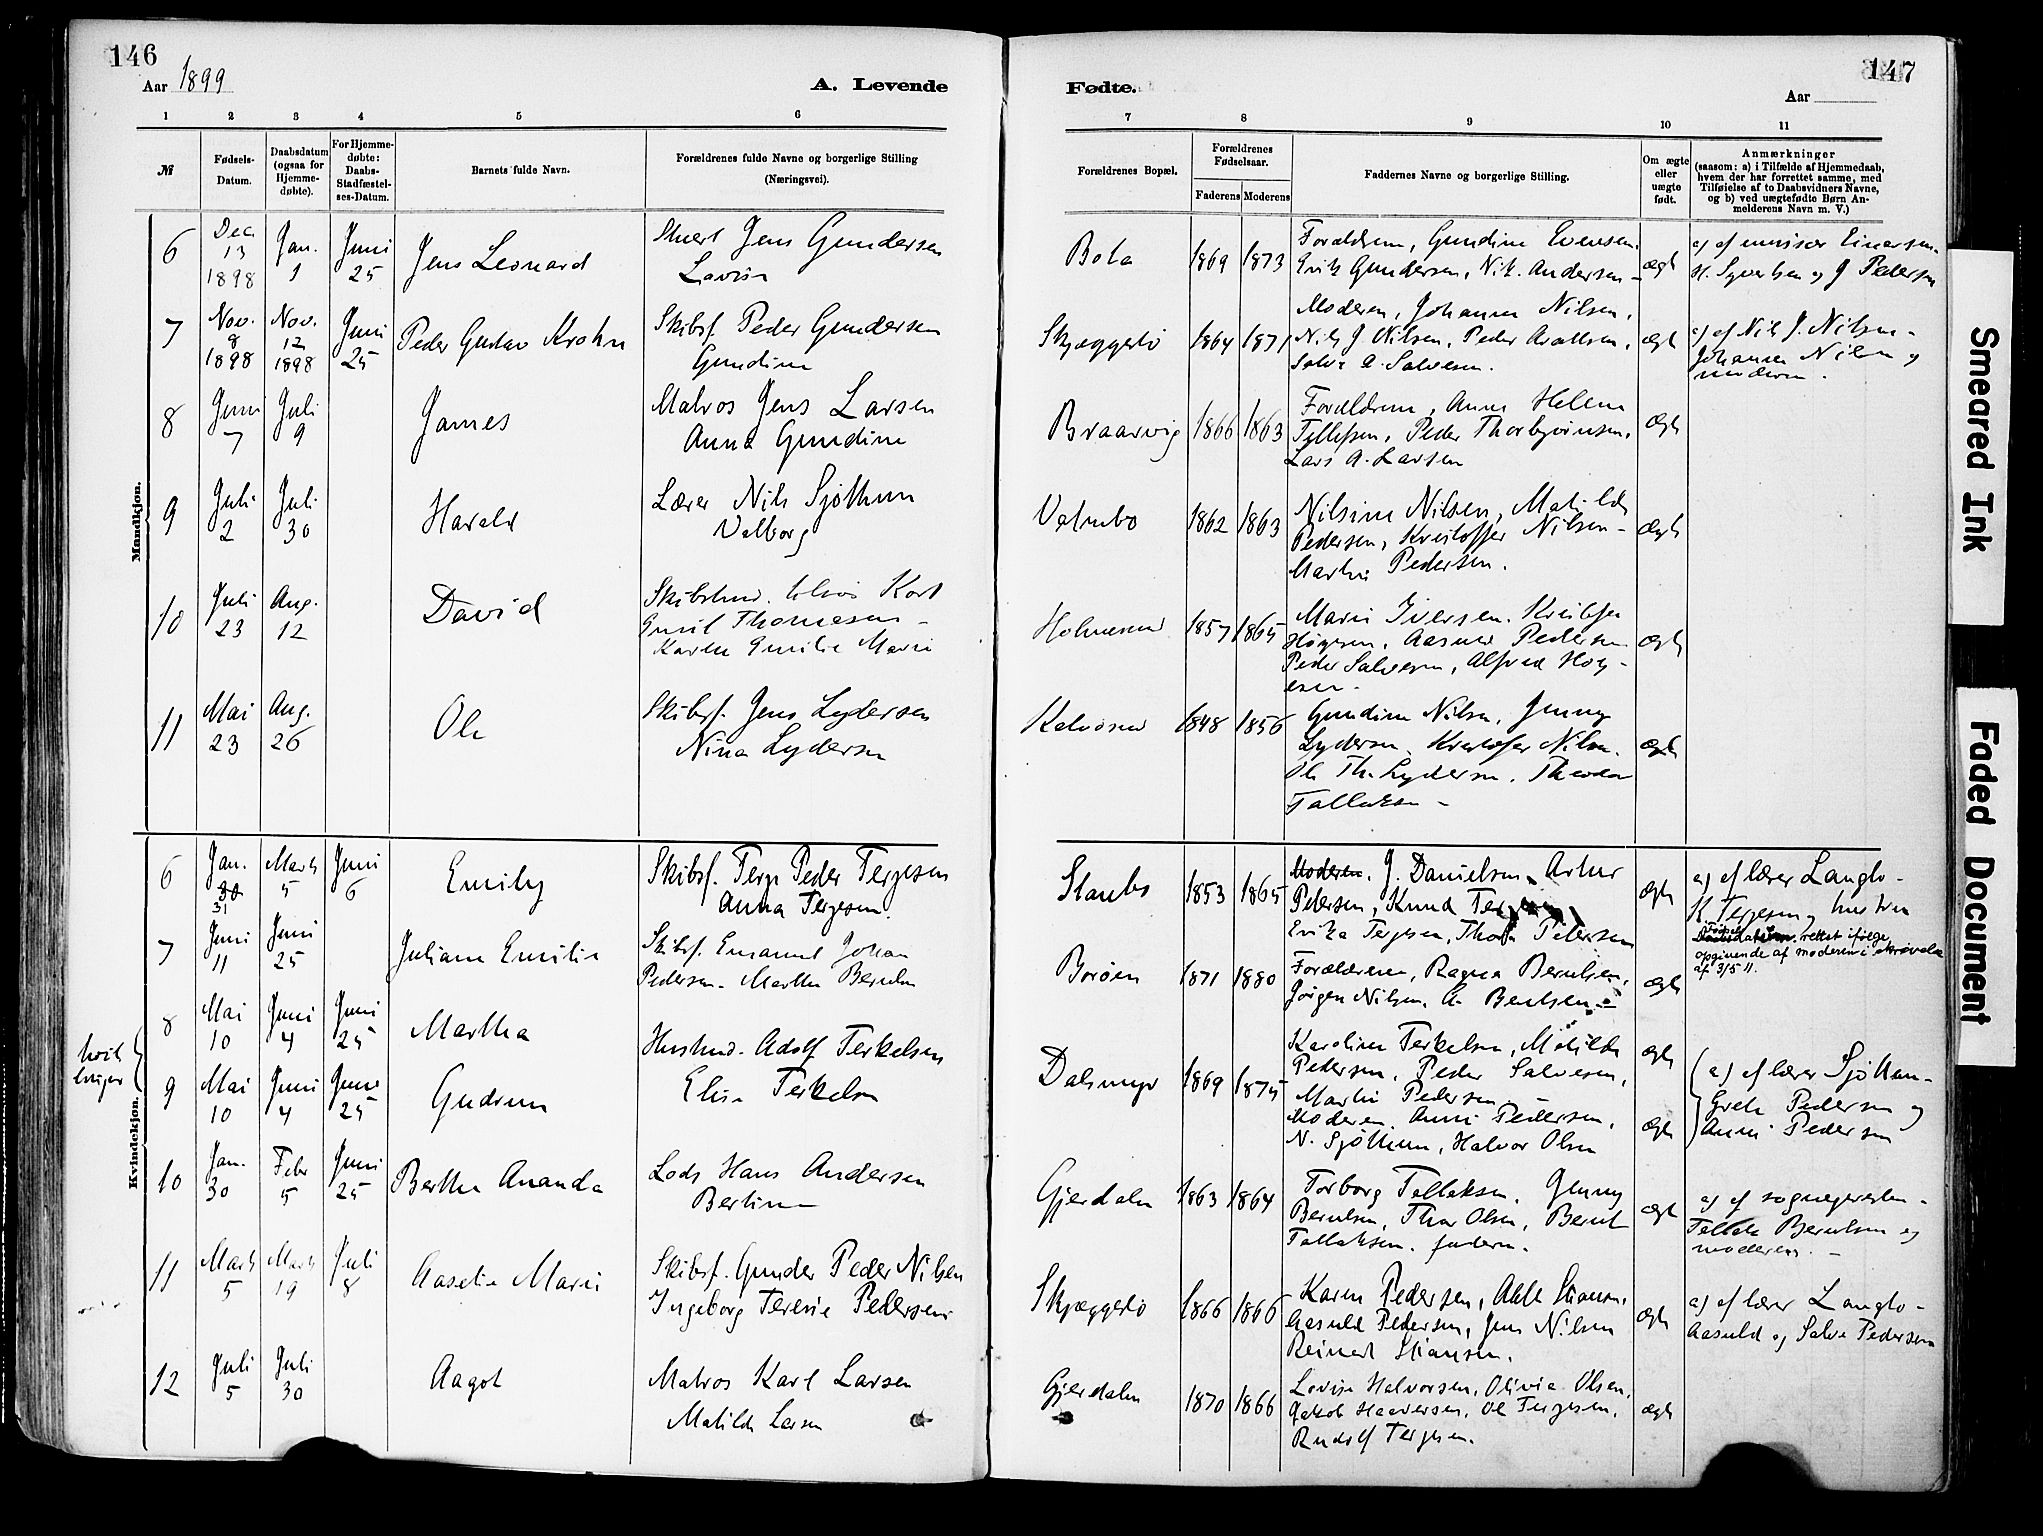 146
Aar 1899
A. Levende
1 2 3 4 5 6
№
Fødsels-Datum.
Daabsdatum (ogsaa for Hjemme-døbte).
For Hjemme-døbte: Daabs-Stadfæstel-ses-Datum.
Barnets fulde Navn.
Forældrenes fulde Navne og borgerlige Stilling
(Næringsvei).
Mandkjøn.
6 Dec. 13 1898 Jan. 1 Juni 25 Jens Leonard
Stuert Jens Gundersen
Lovise
7 Nov. 8 1898 Nov. 12 1898 Juni 25 Peder Gustav Krohn
Skibsf. Peder Gundersen
Gundine
8 Juni 7 Juli 9 James
Matros Jens Larsen
Anna Gundine
9 Juli 2 Juli 30 Harald
Lærer Nils Sjöthun
Valborg
10 Juli 23 Aug. 12 David
Emil Thomesen
Karen Emilie Marie
11 Mai 23 Aug. 26 Ole
Skibsf. Jens Lydersen
Nina Lydersen
Kvindekjøn.
6 Jan. 30 31 Marts 5 Juni 6 Emily
Skibsf. Terje Peder Terjesen
Anna Terjesen.
7 Juni 11 Juni 25 Juliane Emilie
Skibsf. Emanuel Johan
Pedersen - Marthe Berulsen
tvillinger
8 Mai 10 Juni 4 Juni 25 Martha
Husmd. Adolf Terkelsen
9 Mai 10 Juni 4 Juni 25 Gudrun
Elise Terkelsen
10 Jan. 30 Febr 5 Juni 25 Berthe Ananda
Lods Hans Andersen
Bertine
11 Marts 5 Marts 19 Juli 8 Aaselie Marie
Skibsf. Gunder Peder Nilsen
Ingeborg Teresie Pedersen
12 Juli 5 Juli 30 Aagot
Matros Karl Larsen
Matilde Larsen
147
Fødte.
Aar
7 8 9 10 11
Forældrenes Bopæl.
Forældrenes Fødselsaar.
Faderens Moderens
Faddernes Navne og borgerlige Stilling.
Om ægte eller uægte født.
Anmærkninger
(saasom: a) i Tilfælde af Hjemmedaab,
hvem der har forrettet samme, med
Tilføielse af to Daabsvidners Navne,
og b) ved uægtefødte Børn An-
melderens Navn m. V.)
Bota 1869 1873
Forældrene, Gundine Evensen,
Erik Gundersen, Nik. Andersen -
ægte
a) af emissær Einarsen -
H. Syvertsen og J Pedersen
Skjeggestø 1864 1871
Moderen, Johanne Nilsen,
Nils J. Nilsen, Peder Aralksen,
Salve A. Salvesen.
ægte
a) af Nils J. Nilsen -
Johanne Nilsen og
moderen.
Braarvig 1866 1863
Forældrene, Anne Helene
Tellefsen, Peder Thorbjørnsen,
Lars A. Larsen
Ægte
1862 1863
Nilsine Nilsen, Matilde
Pedersen, Kristoffer Nilsen -
Martin Pedersen.
Ægte
Holmesund 1857 1865
Marie Iversen. Kristofer
Høgesen, Aasmund Pedersen
Peder Salvesen, Alfred Høg-
esen -
Ægte
Kalvøsund 1848 1856
Gundine Nilsen, Jenny
Lydersen. Kristofer Nilsen.
Ole Th. Lydersen. Theodor
Tallaksen -
ægte
Staubø 1853 1865
Moderen, J. Danielsen, Artur
Pedersen, Knud Terjesen
Erika Terjesen, Thora Pedersen
ægte
a) af lærer Langlo -
K. Terjesen og hustru
Fødsels
Daabsdatoen rettet ifølge
opgivende af moderen i skrivelse
af 3/5 11.
Borøen 1871 1880
Forældrene, Ragna Berulsen,
Jörgen Nilsen, A. Bentsen -
ægte
Dalsmyr 1869 1875
Karoline Terkelsen, Matilde
Pedersen, Peder Salvesen,
Martin Pedersen -
ægte
Moderen. Anne Pedersen,
N. Sjöthun, Halvor Olsen
ægte
a) af lærer Sjöthun -
Grethe Pedersen og
Anne Pedersen
Gjerdalen 1863 1864
Torborg Tallaksen. Jenny
Berulsen, Thor Olsen, Berul
Tallaksen. faderen.
ægte
a) af
Tallak Berulsen og
moderen. -
Skjeggestø 1866 1866
Karen Pedersen, Aase Stiansen,
Aasuld Pedersen, Jens Nilsen
Reinert Stiansen.
Ægte
a) af lærer Langlo -
Aasuld og Salve Pedersen
Gjerdalen 1870 1866
Lovise Halvorsen, Olivia Olsen,
Jakob Haavorsen, Ole Terjesen,
Rudolf Terjesen.
ægte
Smeared Ink
Faded Document